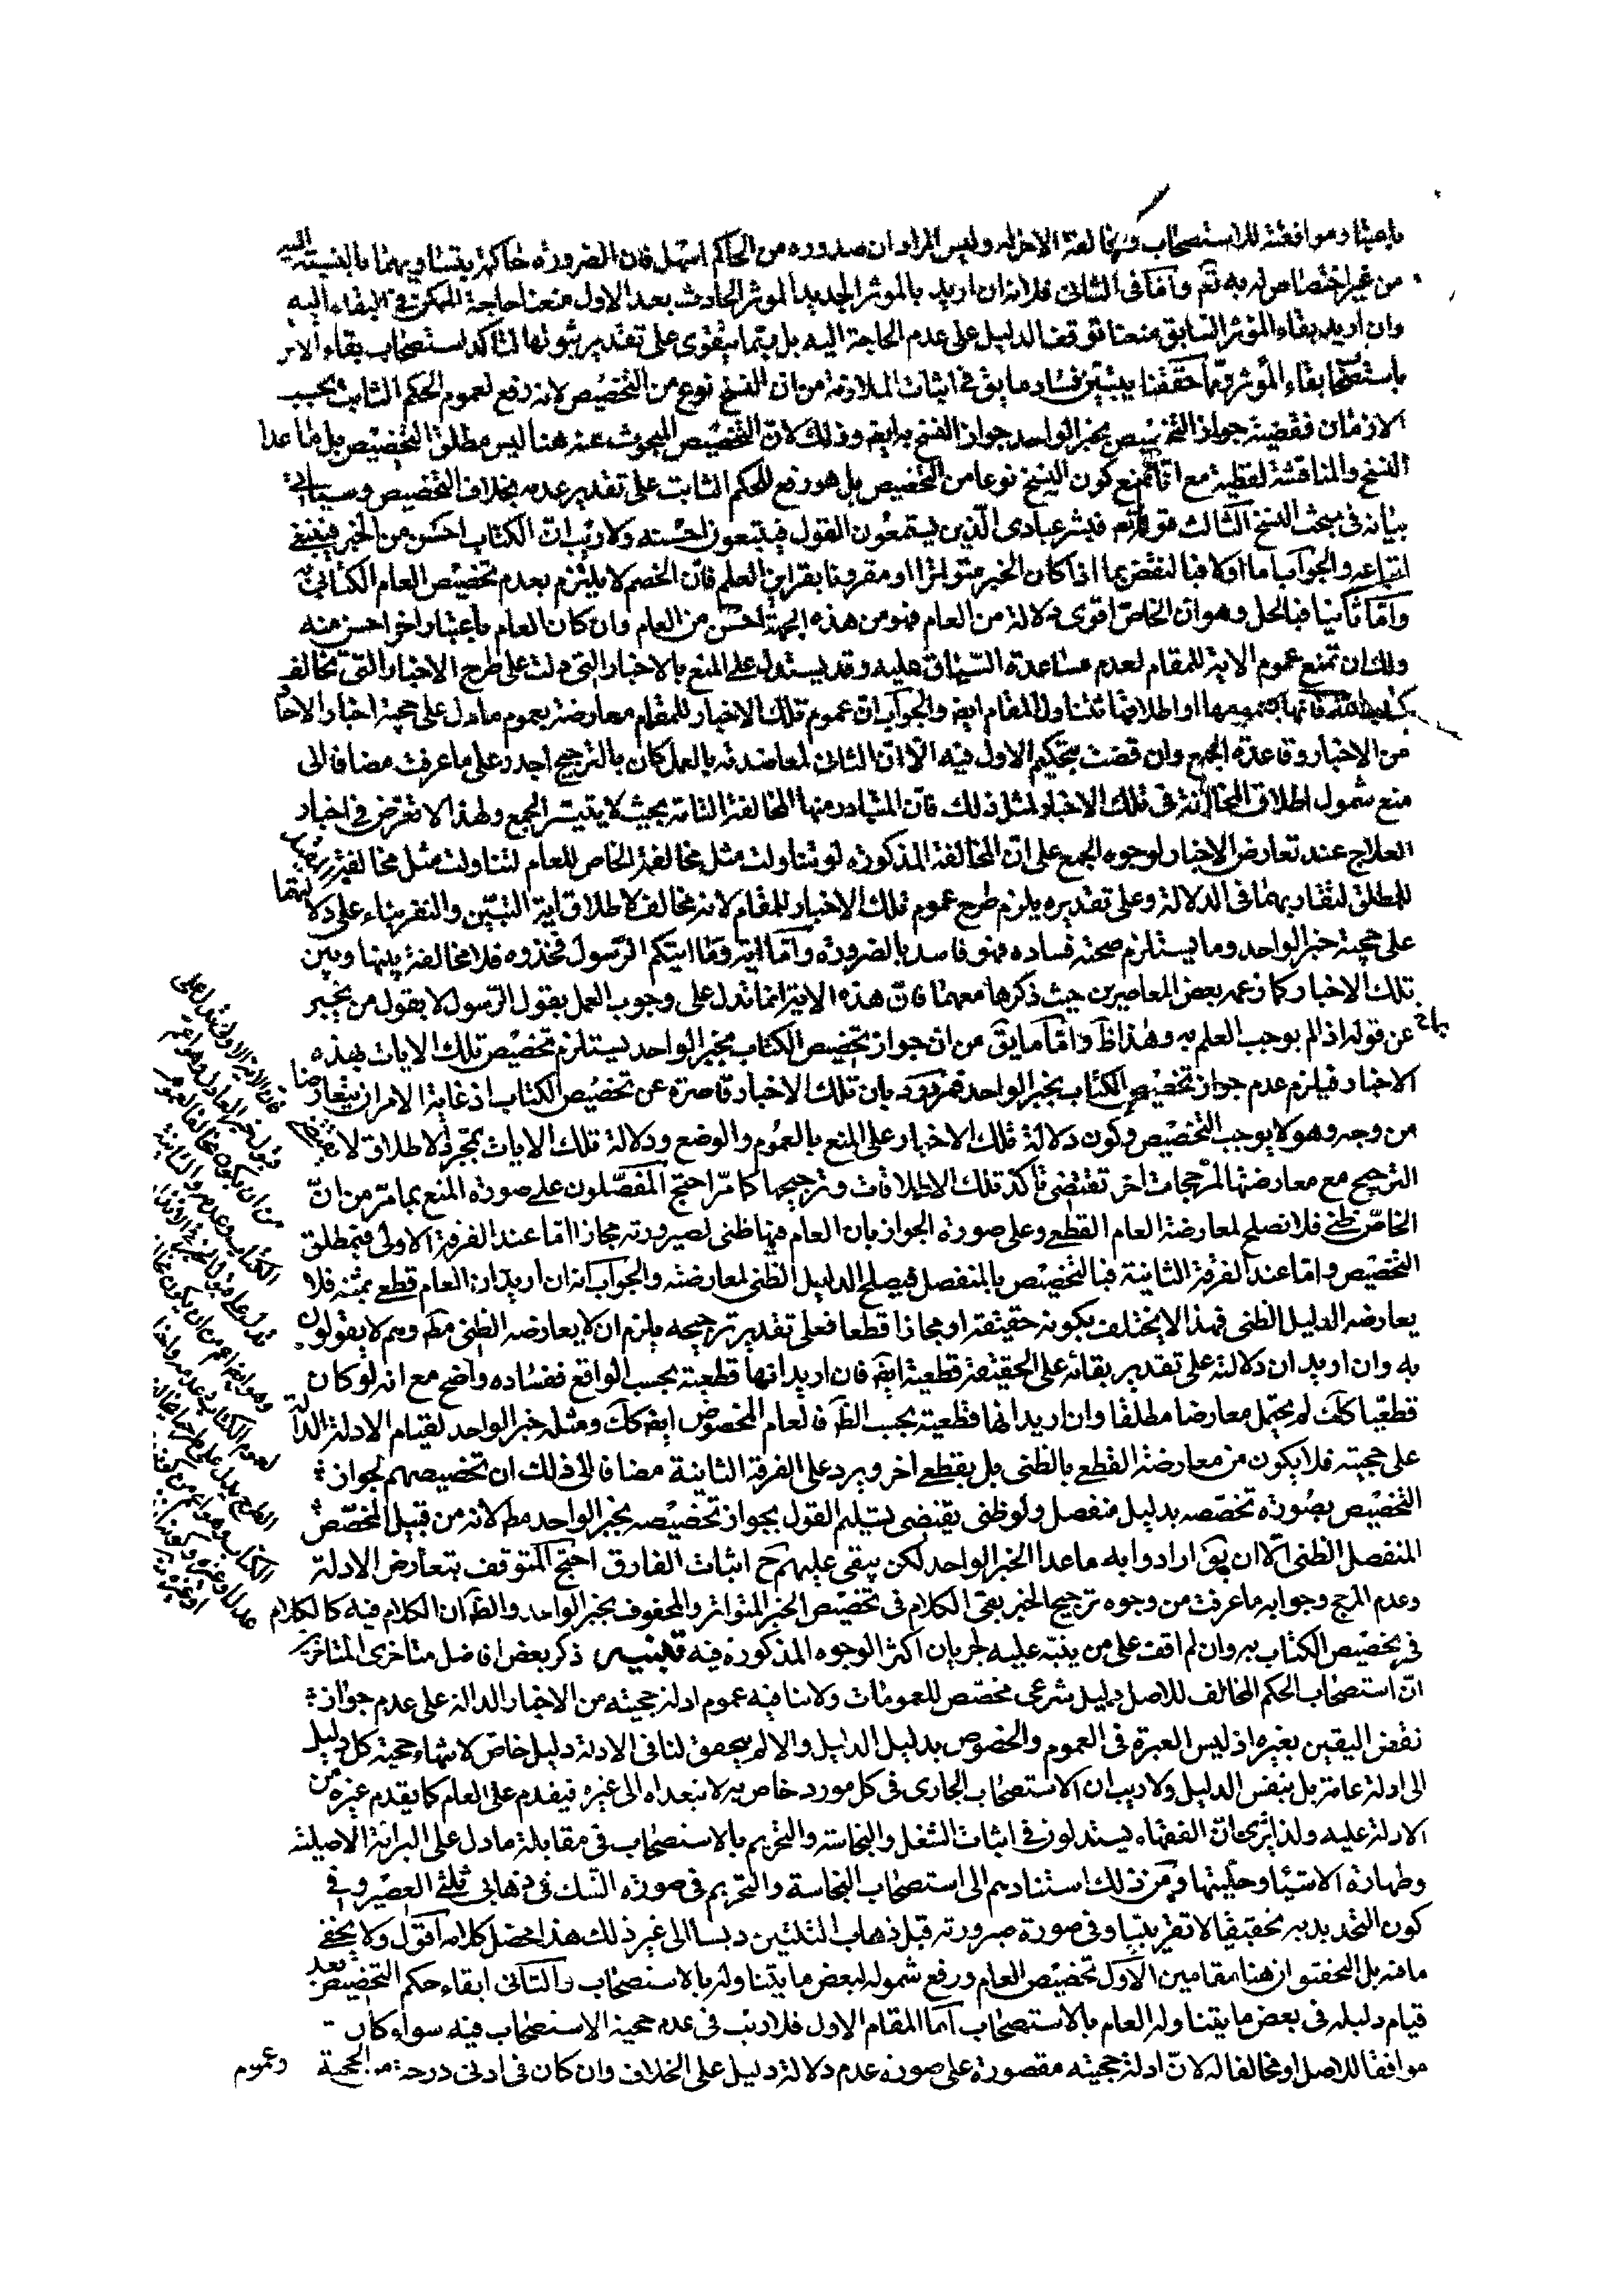 باعتبار موافقته للاستصحاب ومخالفة الاخر له وليس المراد ان صدوره من الحاكم اسهل فان الضرورة حاكمة بتساويهما بالنسبة اليه
من غير اختصاص له به تعم واما فى الثانى فلانه ان اريد بالموثر الجديد الموثر الحادث بعد الاول منعنا حاجة الممكن فى البقاء اليه
وان اريد بقاء المؤثر السابق منعنا توقف الدليل على عدم الحاجة اليه بل ربما يتقوى على تقدير ثبوتها لتاكد استصحاب بقاء الاثر
باستصحاب بقاء المؤثر وبما حققنا يتبين فساد ما يق فى اثبات الملازمة من ان النسخ نوع من التخصيص لانه رفع لعموم الحكم الثابت بحسب
الازمان فقضية جواز التخصيص بخبر الواحد جواز النسخ به ايضا وذلك لان التخصيص المبحوث عنه هنا ليس مطلق التخصيص بل ما عدا
النسخ والمناقشة لفظية مع انا نمنع كون النسخ نوعا من التخصيص بل هو رفع للحكم الثابت على تقدير عدمه بخلاف التخصيص وسياتى
بيانه فى مبحث النسخ الثالث قوله تعم فبشر عبادى الذين يستمعون القول فيتبعون احسنه ولا ريب ان الكتاب احسن من الخبر فينبغى
اتباعه والجواب اما اولا فبالنقض بما اذا كان الخبر متواترا او مقرونا بقراين العلم فان الخصم لا يلتزم بعدم تخصيص العام الكتابى به
واما ثانيا فبالحل وهو ان الخاص اقوى دلالة من العام فهو من هذه الجهة احسن من العام وان كان العام باعتبار اخر احسن منه
ولك ان تمنع عموم الاية للمقام لعدم مساعدة السياق عليه وقد يستدل على المنع بالاخبار التى دلت على طرح الاخبار التى تخالف
كتاب الله فانها بعمومها او اطلاقها تتناول المقام ايض والجواب ان عموم تلك الاخبار للمقام معارضة بعموم ما دل على حجية اخبار الاحاد
من الاخبار وقاعدة الجمع وان قضت بتحكيم الاول فيه الا ان الثانى لمعاضدته بالعمل كان بالترجيح اجدر على ما عرفت مضافا الى
منع شمول اطلاق المخالفة فى تلك الاخبار لمثل ذلك فان المتبادر منها المخالفة التامة بحيث لا يتيسر الجمع ولهذا لا تعرض فى اخبار
العلاج عند تعارض الاخبار لوجوه الجمع على ان المخالفة المذكورة لو تناولت مثل مخالفة الخاص للعام لتناولت مثل مخالفة
للمطلق لتقاربهما فى الدلالة وعلى تقديره يلزم طرح عموم تلك الاخبار للمقام لانه مخالف لاطلاق اية التبين والنفر بناء على دلالتهما
على حجية خبر الواحد وما يستلزم صحته فساده فهو فاسد بالضرورة واما اية وما اتيكم الرسول فخذوه فلا مخالفة بينها وبين
تلك الاخبار كما زعمه بعض المعاصرين حيث ذكرها معهما فان هذه الاية انما تدل على وجوب العمل بقول الرسول لا بقول من يخبر
عن قوله اذا لم يوجب العلم به وهذا ظ واما ما يق من ان جواز تخصيص الكتاب بخبر الواحد يستلزم تخصيص تلك الايات بهذه
الاخبار فيلزم عدم جواز تخصيص الكتاب بخبر الواحد فمردود بان تلك الاخبار قاصرة عن تخصيص الكتاب اذ غاية الامر ان يتعارضا
من وجه وهو لا يوجب التخصيص وكون دلالة تلك الاخبار على المنع بالعموم والوضع ودلالة تلك الايات بمجرد الاطلاق لا يقتضى
الترجيح مع معارضتها لمرجحات اخر تقتضى تاكد تلك الاطلاقات وترجيحها كما مر احتج المفصلون على صورة المنع بما مر من ان
الخاص ظنى فلا تصلح لمعارضة العام القطعى وعلى صورة الجواز بان العام فيها ظنى لصيرورته مجازا اما عند الفرقة الاولى فبمطلق
التخصيص واما عند الفرقة الثانية فبالتخصيص بالمنفصل فيصلح الدليل الظنى لمعارضته والجواب انه ان اريد ان العام قطعى بمتنه فلا
يعارضه الدليل الظنى فهذا لا يختلف بكونه حقيقة او مجازا قطعا فعلى تقدير ترجيحه يلزم ان لا يعارضه الظنى مط وهم لا يقولون
به وان اريد ان دلالته على تقدير بقائه على الحقيقة قطعية ايض فان اريد انها قطعية بحسب الواقع ففساده واضح مع انه لو كان
قطعيا كك لم يحتمل معارضا مطلقا وان اريد انها قطعية بحسب الظ فالعام المخصوص ايض كك ومثله خبر الواحد لقيام الادلة الدالة
على حجيته فلا يكون من معارضة القطعى بالظنى بل بقطعى اخر ويرد على الفرقة الثانية مضافا الى ذلك ان تخصيصهم لجواز
التخصيص بصورة تخصصه بدليل منفصل ولو ظنى يقتضى تسليم القول بجواز تخصيصه بخبر الواحد مط لانه من قبيل المخصص
المنفصل الظنى الا ان يق ارادوا به ما عدا الخبر الواحد لكن يبقى عليهم ح اثبات الفارق احتج المتوقف بتعارض الادلة
وعدم المرجح وجوابه ما عرفت من وجوه ترجيح الخبر بقى الكلام فى تخصيص الخبر المتواتر والمحفوف بخبر الواحد والظ ان الكلام فيه كالكلام
فى تخصيص الكتاب به وان لم اقف على من ينبه عليه لجريان اكثر الوجوه المذكورة فيه تنبيه ذكر بعض افاضل متاخرى المتاخرين
ان استصحاب الحكم المخالف للاصل دليل شرعى مخصص للعمومات ولا ينافيه عموم ادلة حجيته من الاخبار الدالة على عدم جواز
نقض اليقين بغيره اذ ليس العبرة فى العموم والخصوص بدليل الدليل والا لم يتحقق لنا فى الادلة دليل خاص لانتهاء حجية كل دليل
الى ادلة عامة بل بنفس الدليل ولا ريب ان الاستصحاب الجارى فى كل مورد خاص به لا يتعداه الى غيره فيقدم على العام كما يقدم غيره من
الادلة عليه ولذا ترى ان الفقهاء يستدلون فى اثبات الشغل والنجاسة والتحريم بالاستصحاب فى مقابلة ما دل على البرائة الاصلية
وطهارة الاشياء وحليتها ومن ذلك استنادهم الى استصحاب النجاسة والتحريم فى صورة الشك فى ذهاب ثلثى العصير وفى
كون التحديد به تحقيقيا لا تقريبيا وفى صورة صيرورته قبل ذهاب الثلثين دبسا الى غير ذلك هذا محصل كلامه اقول ولا يخفى
ما فيه بل التحقيق ان هنا مقامين الاول تخصيص العام ورفع شموله لبعض ما يتناوله بالاستصحاب والثانى ابقاء حكم التخصيص بعد
قيام دليله فى بعض ما يتناوله العام بالاستصحاب اما المقام الاول فلا ريب فى عدم حجية الاستصحاب فيه سواء كان
موافقا للاصل او مخالفا له لان ادلة حجيته مقصورة على صورة عدم دلالة دليل على الخلاف وان كان فى ادنى درجة من الحجية
وعموم